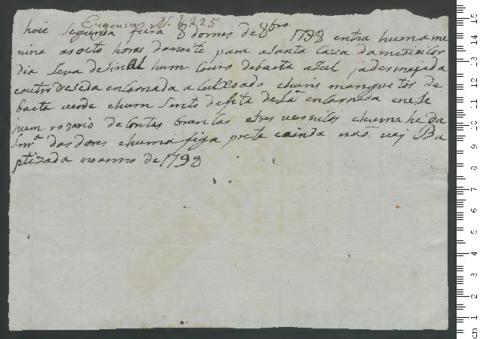 Eugenia N. 1225
hoie segunda feira 8 domes de 8bro 1798 entra huma me
nina as oito horas danoite para a Santa Caza damezericor
dia Leva de Sinal hum Coeiro debaeta azul ja desmaiada
e outro de seda encarnada acolxoado huns manguitos de
baeta verde e hum Sinto de fita de lã encarnada e nele
hum rozario de Contas brancas e tres veronicas e huma he da
Snrª das dores e huma figa preta e ainda não vaj Ba
ptizada no anno de 1798
cm 1 2 3 4 5 6 7 8 9 10 11 12 13 14 15